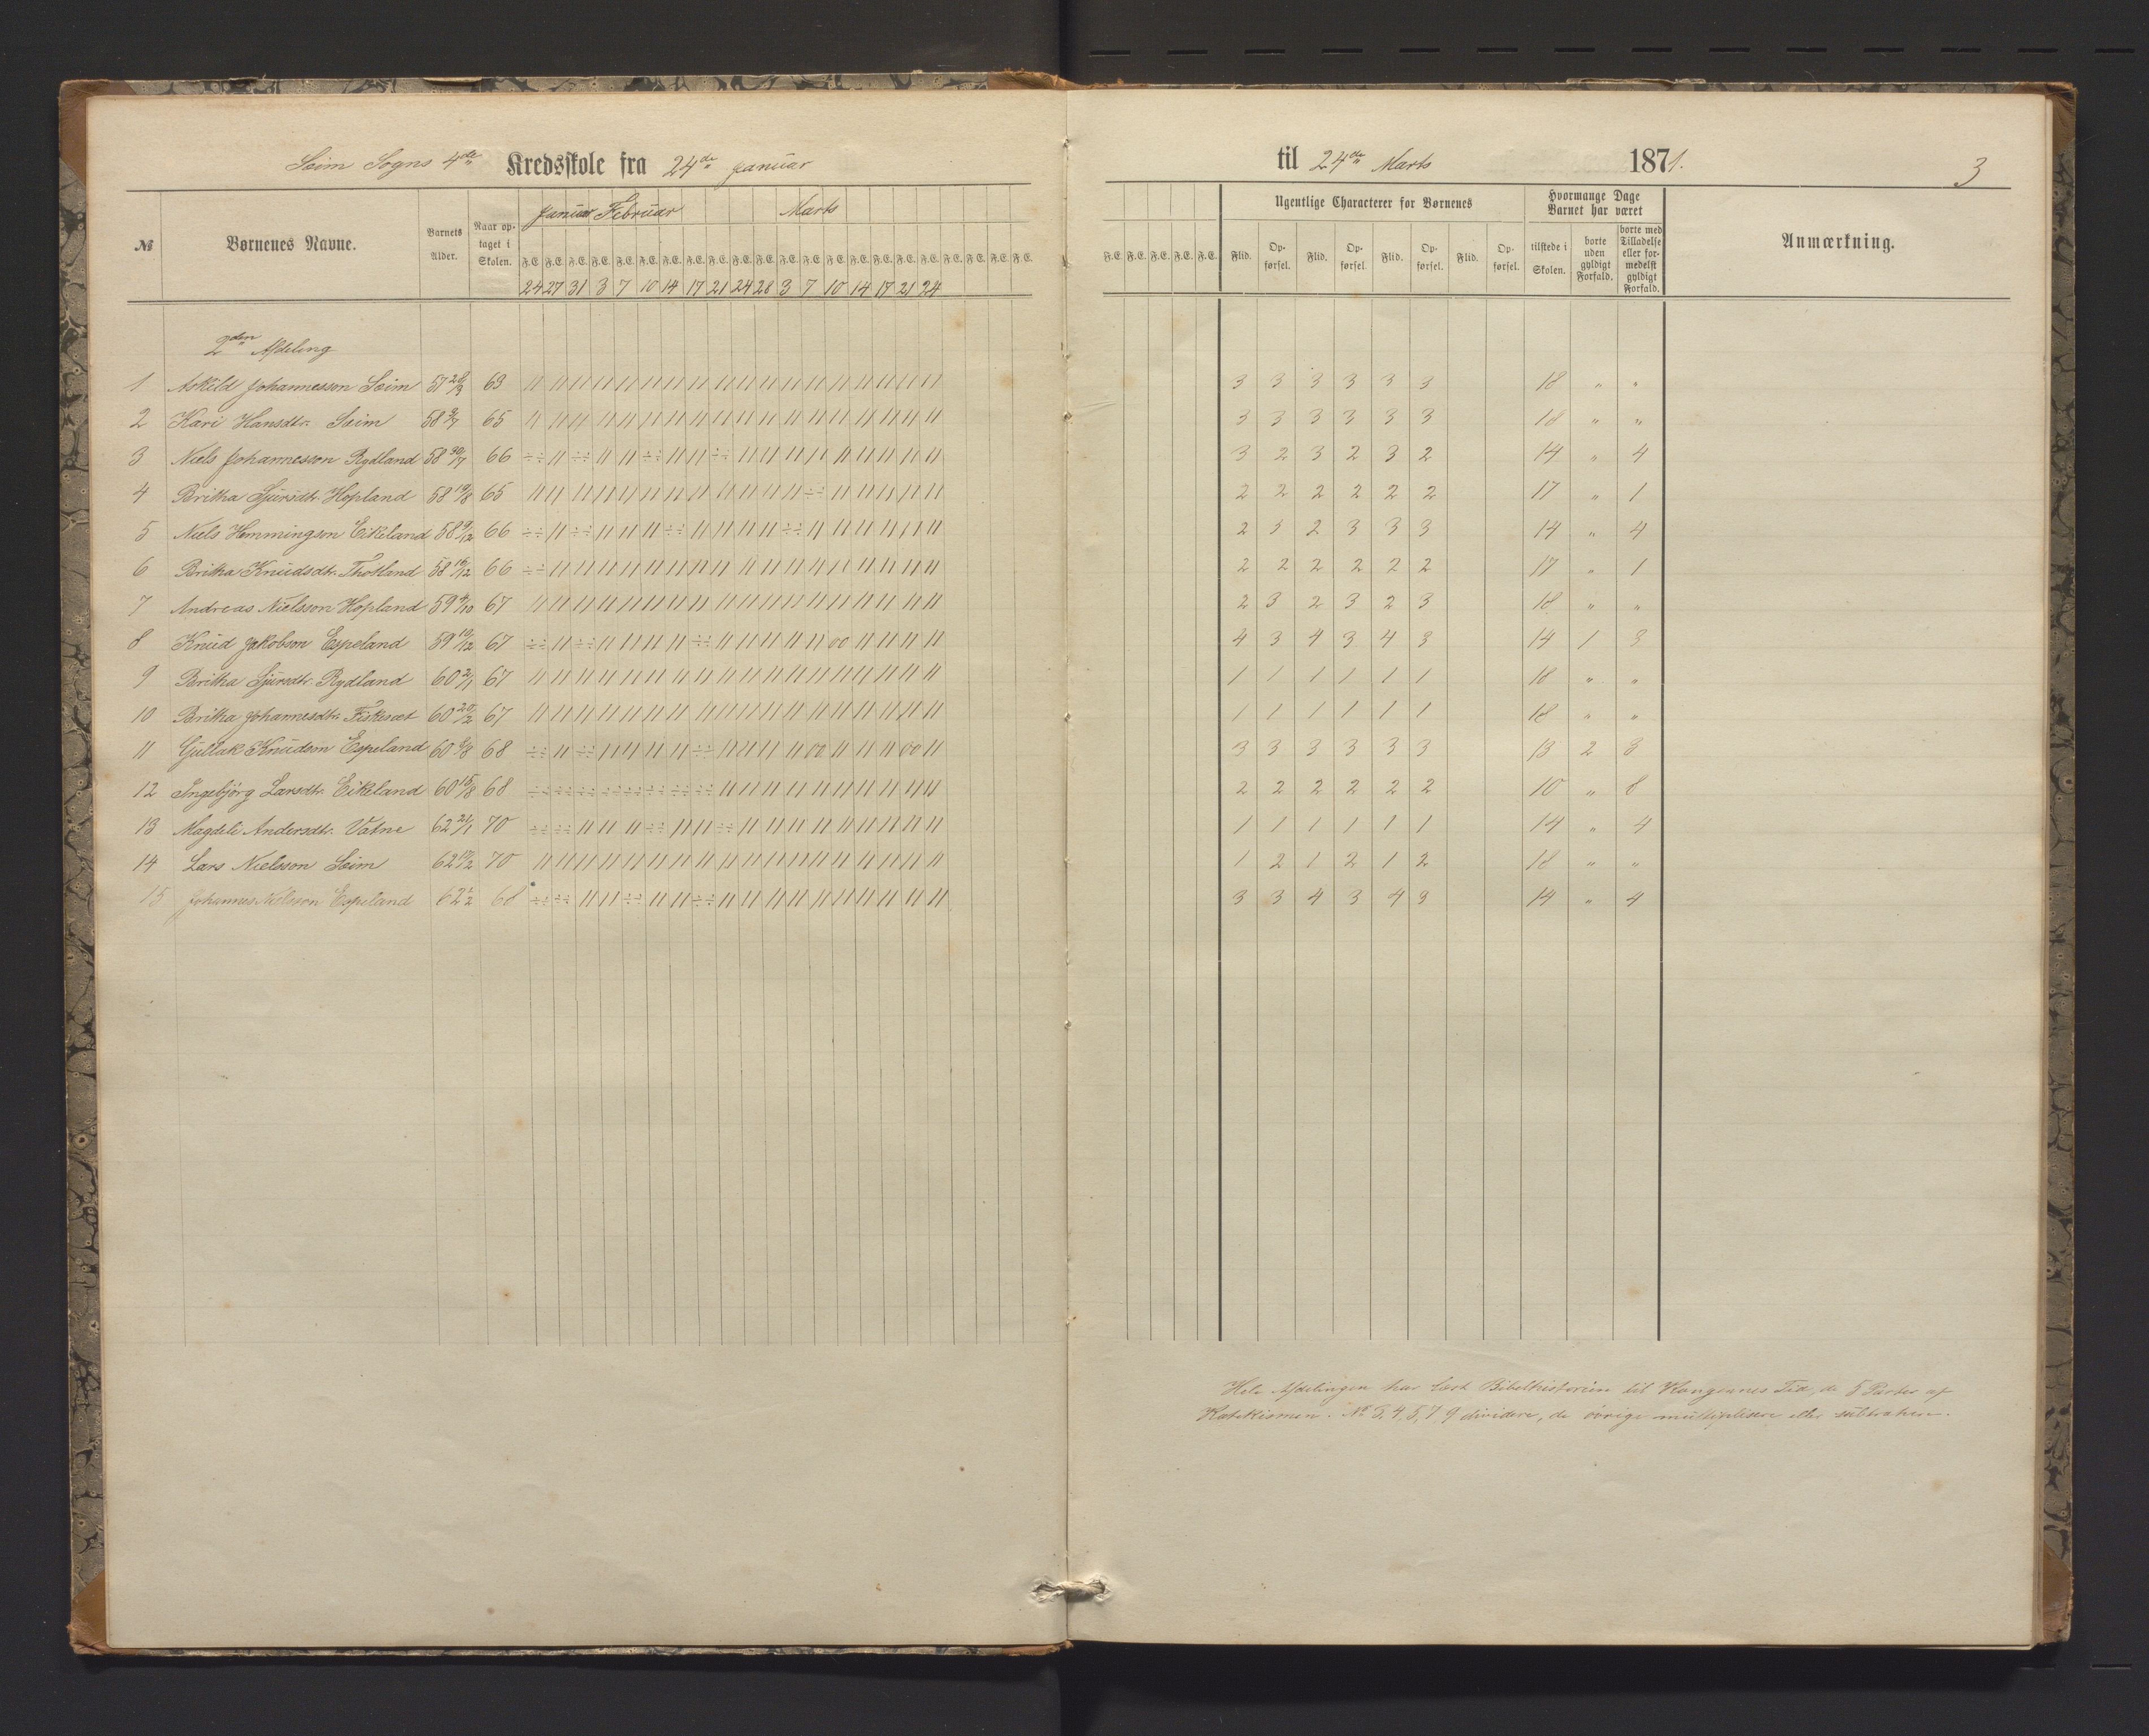 Seim Sogns 4de Kredsskole fra 24de Januar til 24de Marts 1871. 3
№ Børnenes Navne. Barnets Alder. Naar optaget i Skolen. Januar Februar Marts Ugentlige Characterer for Børnenes Hvormange Dage Barnet har været Anmærkning.
F.E. F.E. F.E. F.E. F.E. F.E. F.E. F.E. F.E. F.E. F.E. F.E. F.E. F.E. F.E. F.E. F.E. F.E. F.E. F.E. F.E. F.E. F.E. F.E. F.E. F.E. F.E. Flid. Opførsel. Flid. Opførsel. Flid. Opførsel. Flid. Opførsel. tilstede i Skolen. borte uden gyldigt Forfald. borte med Tilladelse eller formedelst gyldigt Forfald.
24 27 31 3 7 10 14 17 21 24 28 3 7 10 14 17 21 24
2den Afdeling
1 Askild Johannesson Seim 57 28/3 63 3 3 3 3 3 3 18 " "
2 Kari Hansdtr. Seim 58 65 3 3 3 3 3 3 18 " "
3 Niels Johannesson Rydland 58 30/7 66 3 2 3 2 3 2 14 " 4
4 Britha Sjursdtr. Hopland 58 19/8 65 2 2 2 2 2 2 17 " 1
5 Niels Hemmingson Eikeland 58 9/12 66 2 3 2 3 3 3 14 " 4
6 Britha Knudsdtr. 58 66 2 2 2 2 2 2 17 " 1
7 Andreas Nielsson Hopland 59 67 2 3 2 3 2 3 18 " "
8 Knud Jakobson Espeland 59 19/12 67 4 3 4 3 4 3 14 1 3
9 Britha Sjursdtr. Rydland 60 2/1 67 1 1 1 1 1 1 18 " "
10 Britha Johannesdtr. Fiskesæt 60 67 1 1 1 1 1 1 18 " "
11 Gullak Knudson Espeland 60 68 3 3 3 3 3 3 13 2 3
12 Ingebjørg Larsdtr. Eikeland 60 15/8 68 2 2 2 2 2 2 10 " 8
13 Magdeli Andersdtr. Vatne 62 21/1 70 1 1 1 1 1 1 14 " 4
14 Lars Nielsson Seim 62 70 1 2 1 2 1 2 18 " "
15 Johannes Nielsson Espeland 62 68 3 3 4 3 4 3 14 " 4
Hele Afdelingen har læst Bibelhistorien til Kongernes Tid, de 5 Parter af
Katekismen. No 3, 4, 5, 7 9 dividere, de øvrige multiplisere eller subtrahere.